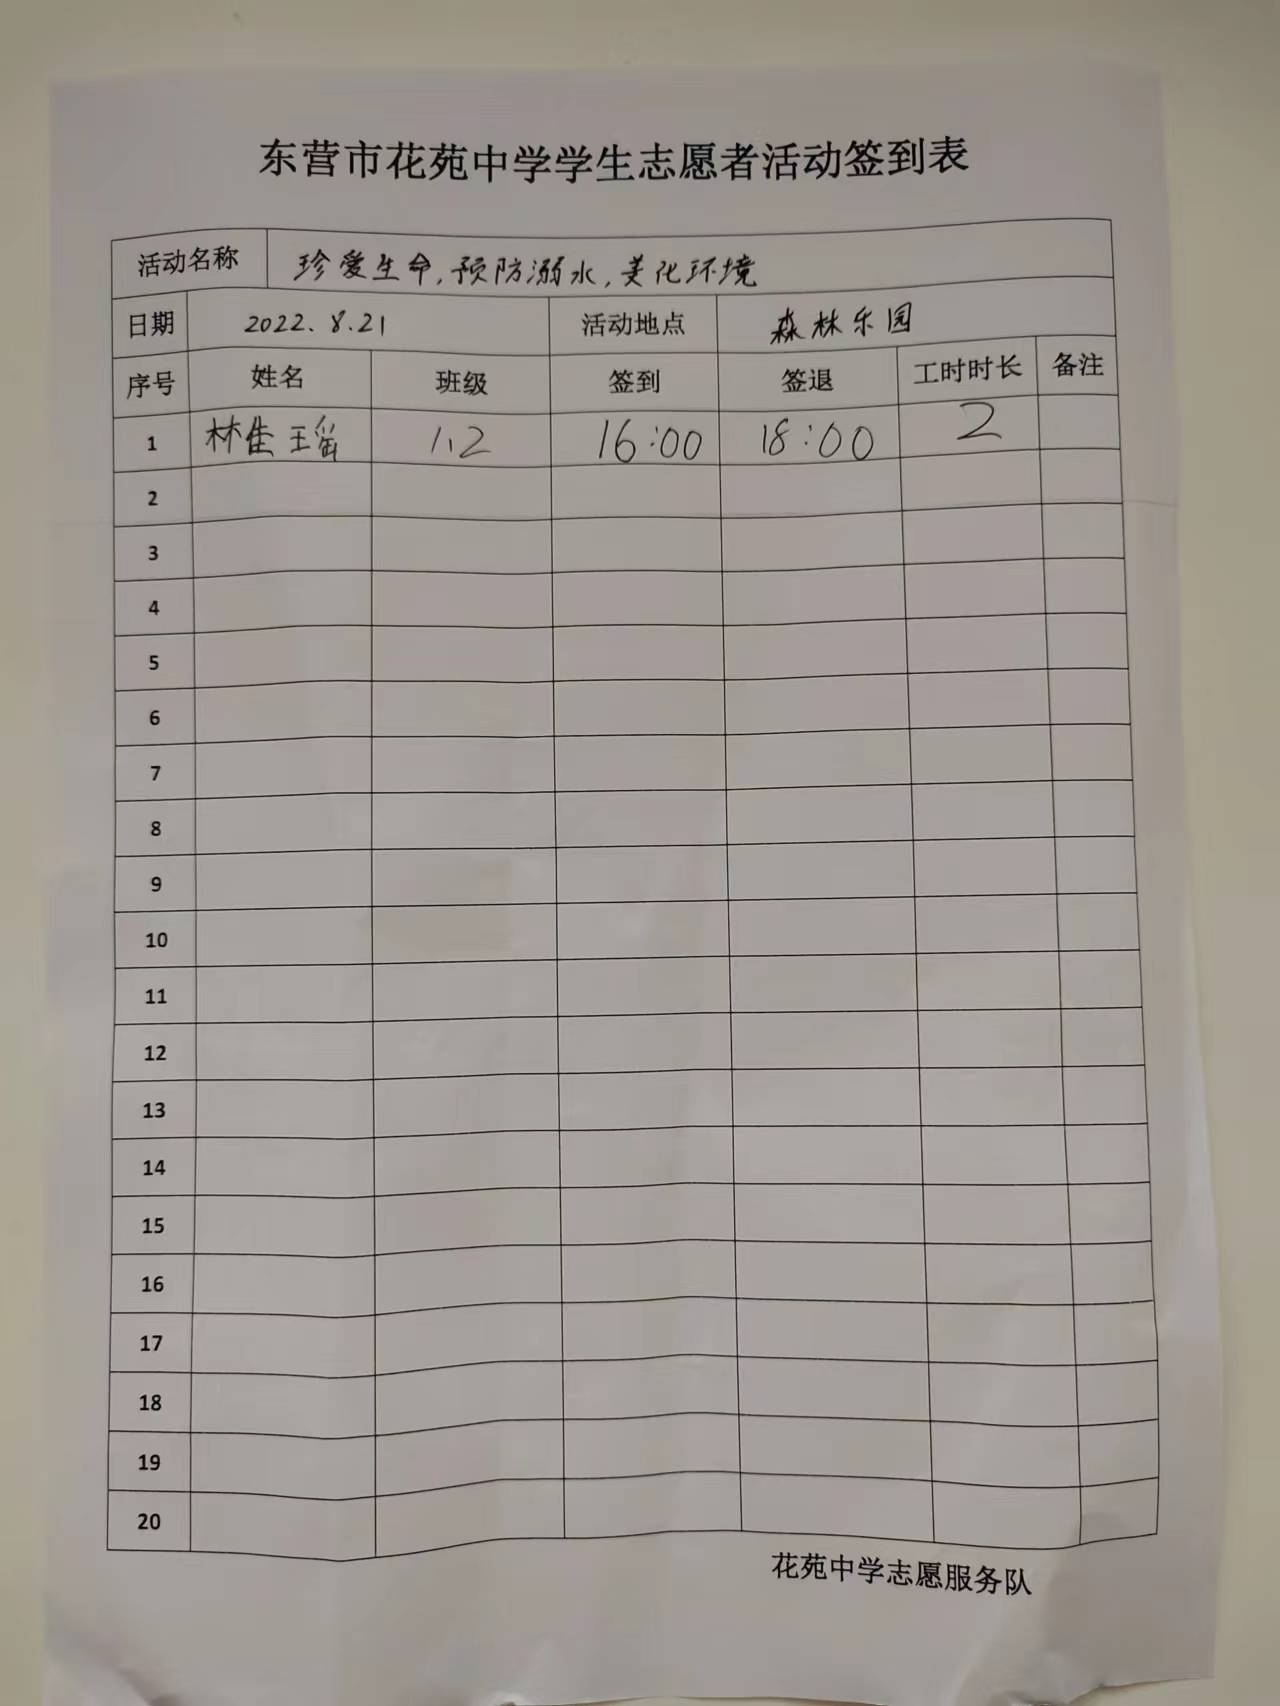 东营市花苑中学学生志愿者活动签到表
活动名称 珍爱生命,预防溺水,美化环境
日期 2022.8.21 活动地点 森林乐园
序号 姓名 班级 签到 签退 工时时长 备注
1 林佳瑶 1.2 16:00 18:00 2
2
3
4
5
6
7
8
9
10
11
12
13
14
15
16
17
18
19
20
花苑中学志愿服务队